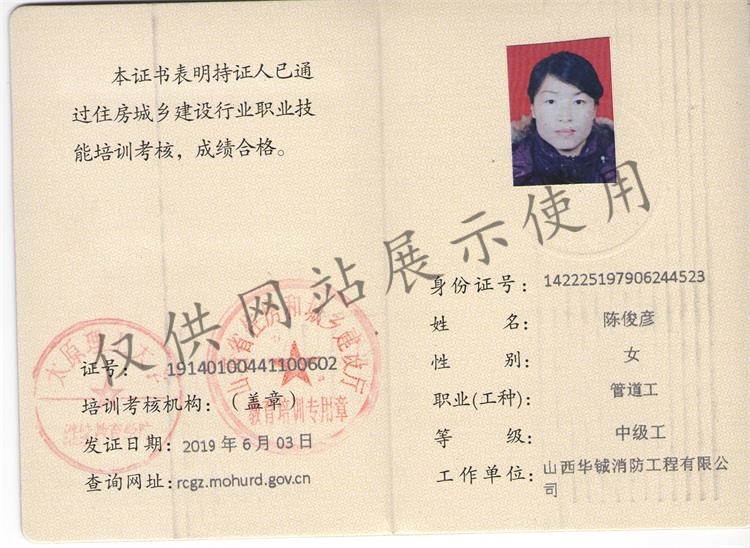 本证书表明持证人已通
过住房城乡建设行业职业技
能培训考核，成绩合格。
证号：19140100441100602
培训考核机构：（盖章）
发证日期：2019 年 6 月 03 日
查询网址:rcgz.mohurd.gov.cn
山西省住房和城乡建设厅
教育培训专用章
太原理工大学
仅供网站展示使用
身份证号：142225197906244523
姓 名：陈俊彦
性 别：女
职业(工种)：管道工
等 级：中级工
工作单位：山西华铖消防工程有限公
司